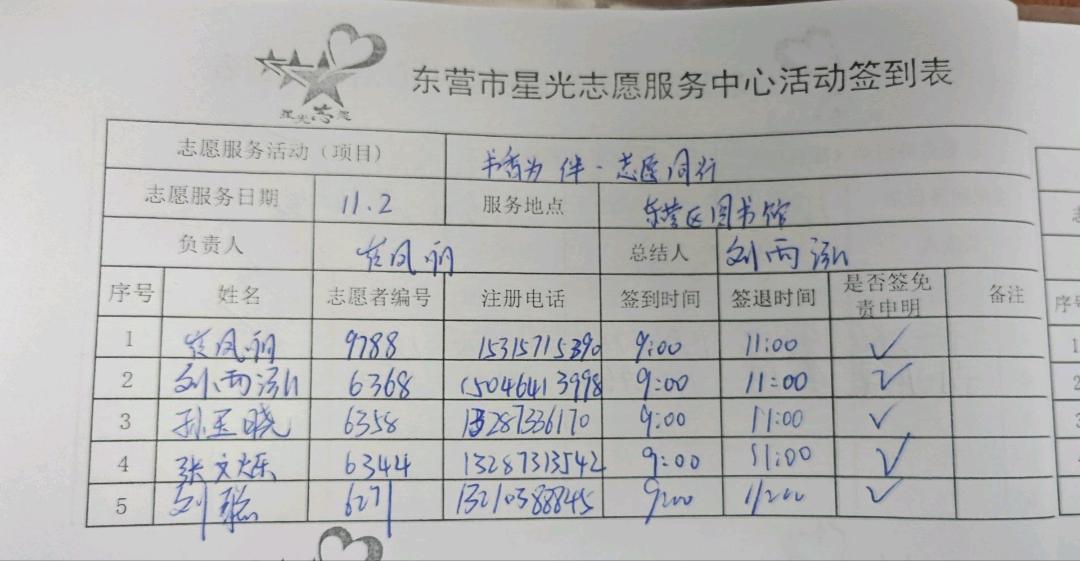 星光志愿
东营市星光志愿服务中心活动签到表
志愿服务活动（项目） 书香为伴·志愿同行
志愿服务日期 11.2 服务地点 东营区图书馆
负责人 凤丽 总结人 刘雨泓
序号 姓名 志愿者编号 注册电话 签到时间 签退时间 是否签免责申明 备注
1 凤丽 9788 15315715390 9:00 11:00 ✓
2 刘雨泓 6368 15046413998 9:00 11:00 ✓
3 孙玉晓 6358 13287336170 9:00 11:00 ✓
4 张文烁 6344 13287313542 9:00 11:00 ✓
5 刘聪 6271 13210388845 9:00 11:00 ✓
序号
1
2
3